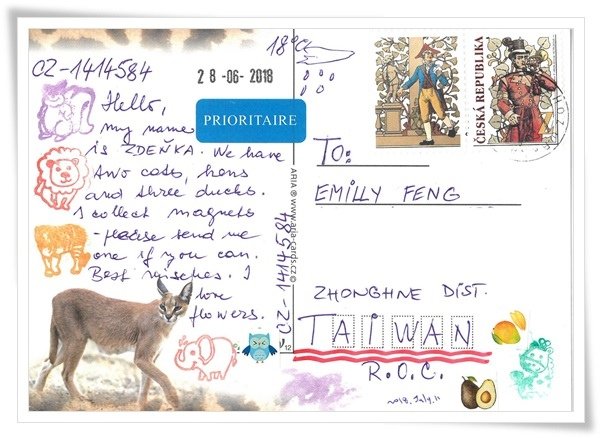 18°C
CZ-1414584
28-06-2018
PRIORITAIRE
Hello,
my name
is ZDEŇKA. We have
two cats, hens
and three ducks.
I collect magnets
- please send me
one if you can.
Best wisches. I
love
flowers.
ARIA ® www.aria-cards.cz ©
CZ-1414584
12
ČESKÁ REPUBLIKA
TO:
EMILLY FENG
ZHONGHNE DIST.
TAIWAN
R.O.C.
2018. July. 11